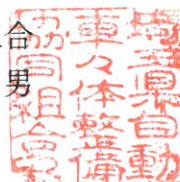 合
男
埼玉県自動
車々体整備
協同組合